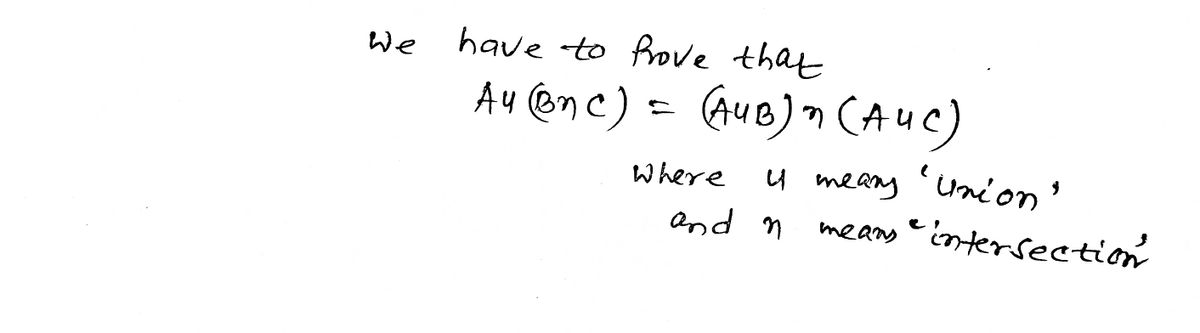 We have to prove that
A u (B n C) = (A u B) n (A u C)
where u means 'union'
and n means 'intersection'